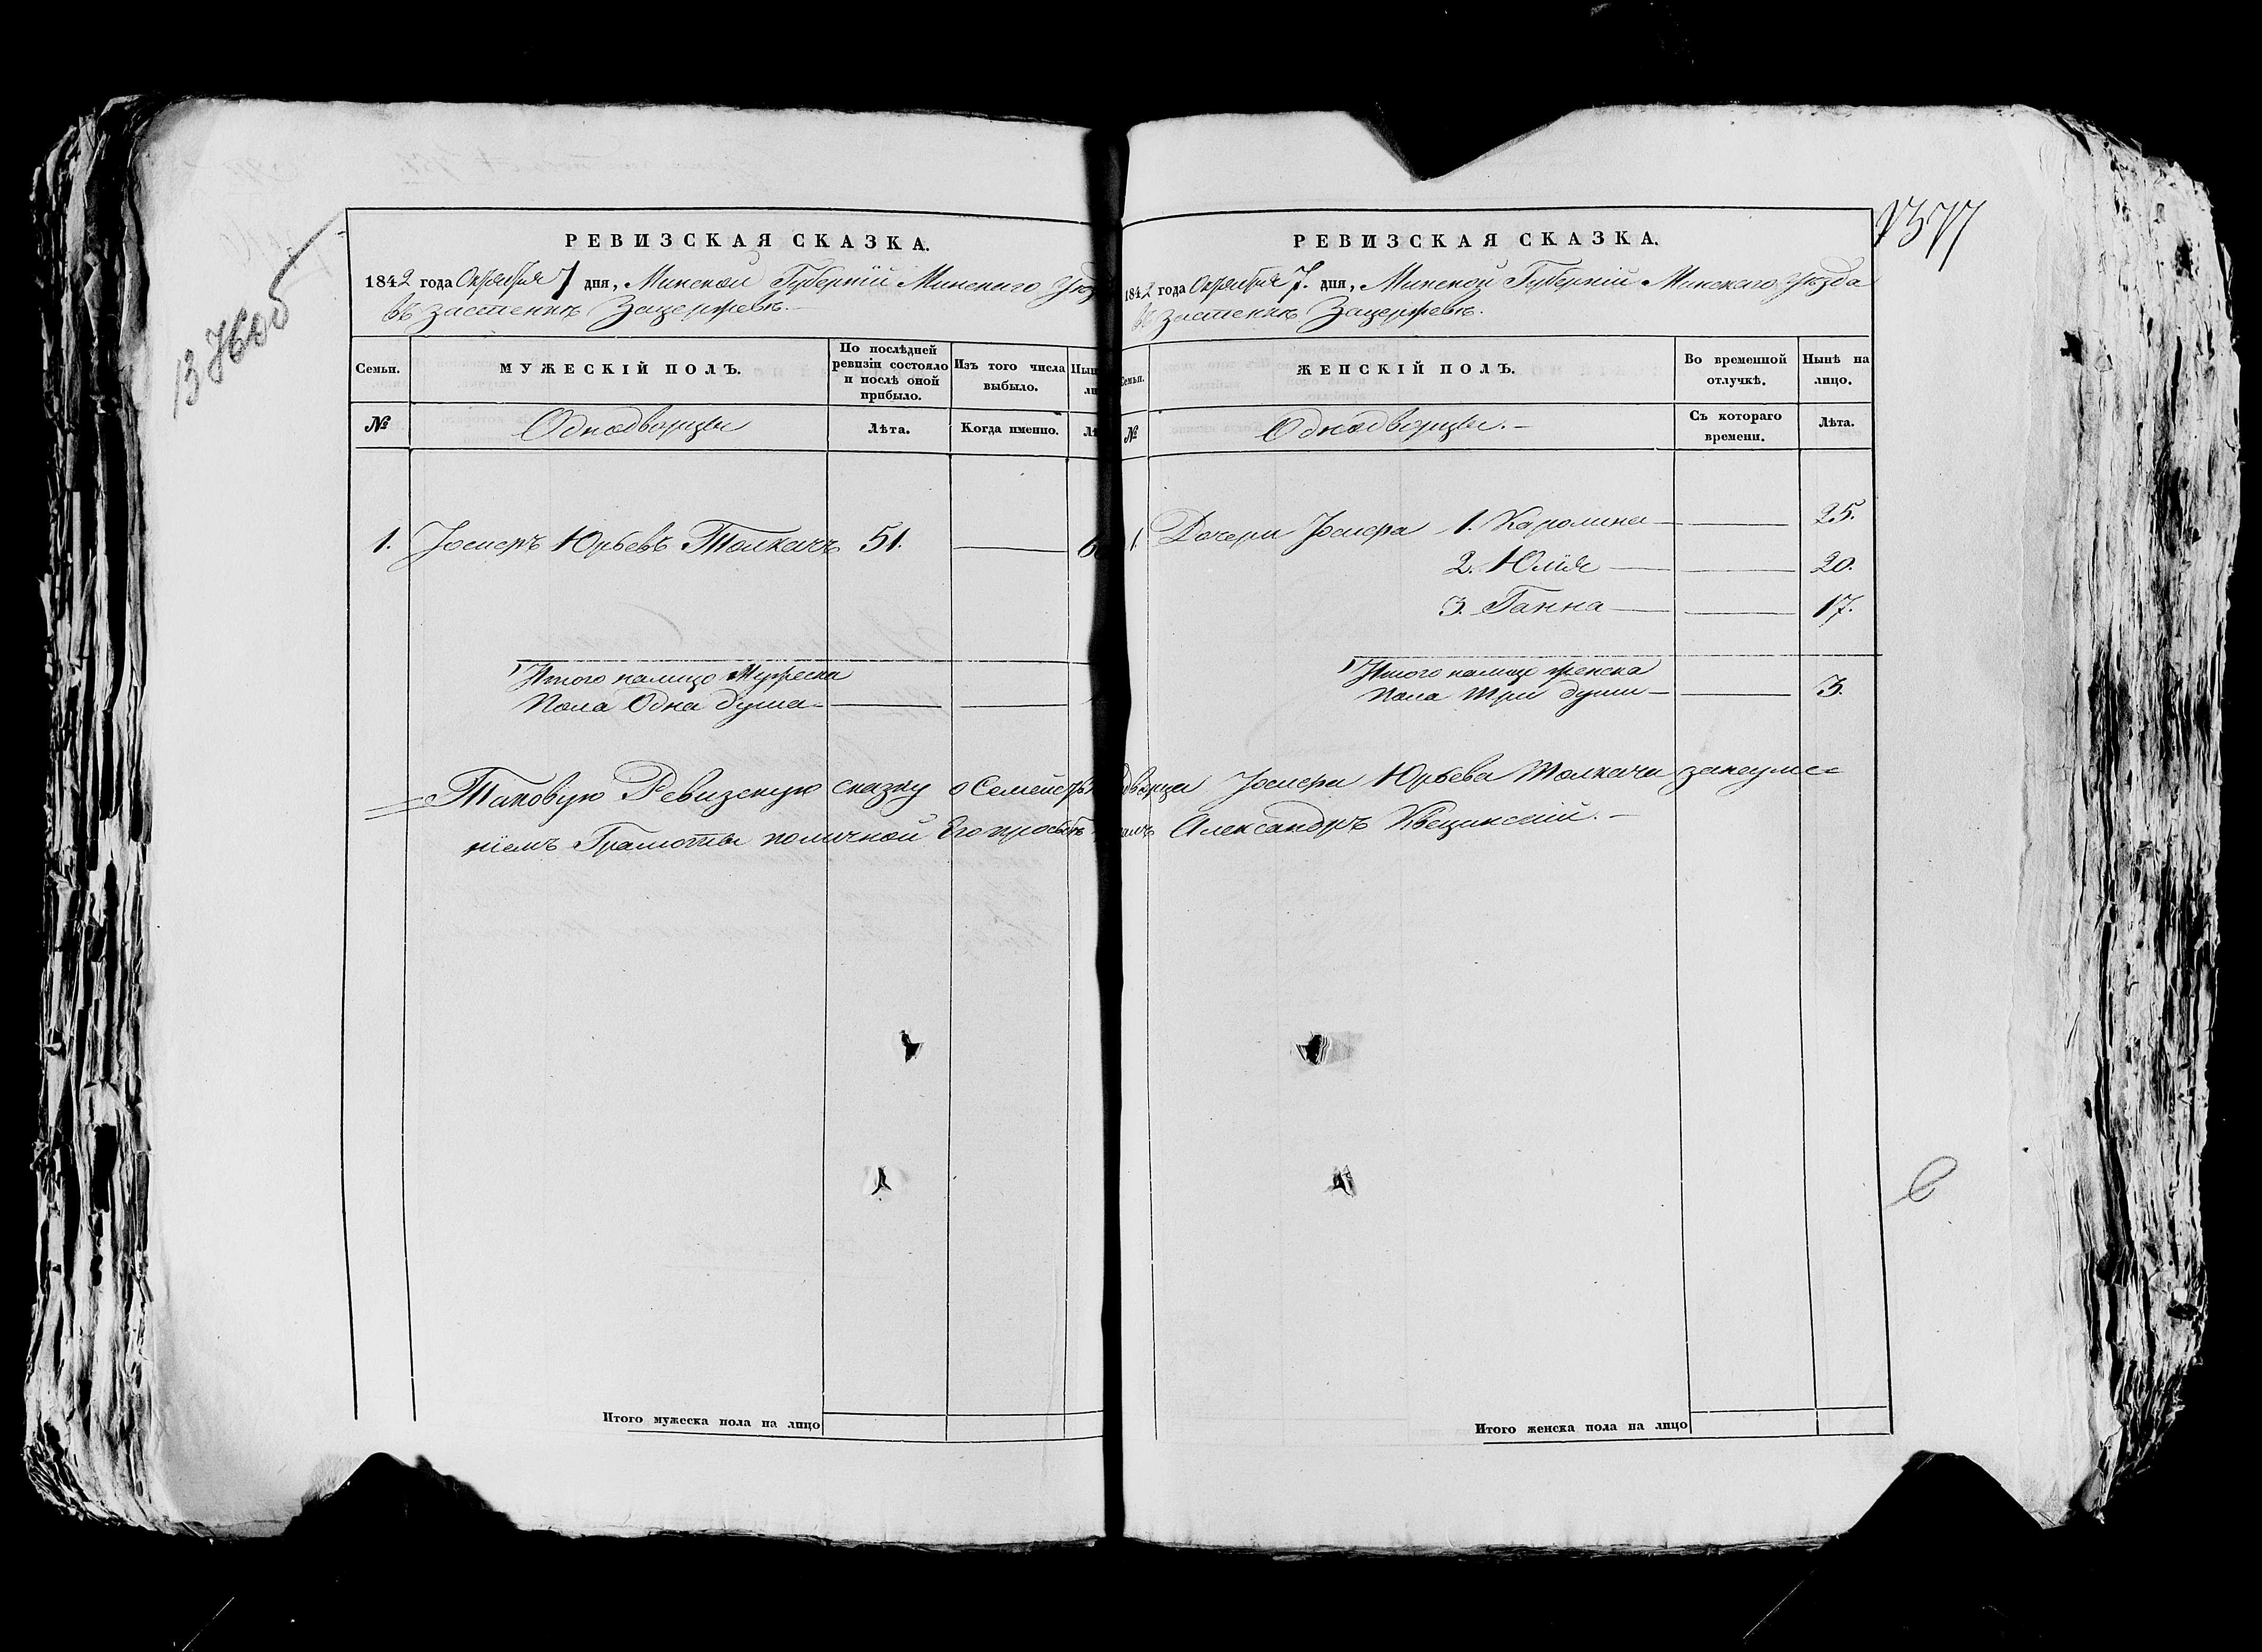 РЕВИЗСКАЯ СКАЗКА.
1842 года Октября 7 дня, Минской Губерніи Минскаго Уѣз
въ застенкѣ Зацержевѣ.
Семьи.
МУЖЕСКІЙ ПОЛЪ.
По послѣдней ревизіи состояло и послѣ оной прибыло.
Изъ того числа выбыло.
№
Однодворцы
Лѣта.
Когда именно.
1. Іосифъ Юрьевъ Толкачъ 51.
Итого налицо Мужеска
Пола Одна душа
Таковую Ревизскую сказку о Семействѣ
ніемъ Грамоты поличной Его прозьбѣ
Итого мужеска пола на лицо
1377
РЕВИЗСКАЯ СКАЗКА.
1842 года Октября 7. дня, Минской Губерніи Минскаго Уѣзда
въ застенкѣ Зацержевѣ.
Семьи.
ЖЕНСКІЙ ПОЛЪ.
Во временной отлучкѣ.
Нынѣ на лицо.
№
Однодворцы.
Съ котораго времени.
Лѣта.
1. Дочери Іосифа 1. Каролина 25.
2. Юлія 20.
3. Ганна 17.
Итого налицо женска
Пола три души 3.
дворца Іосифа Юрьева Толкача занеуме=
Александръ Квецинскій.
Итого женска пола на лицо